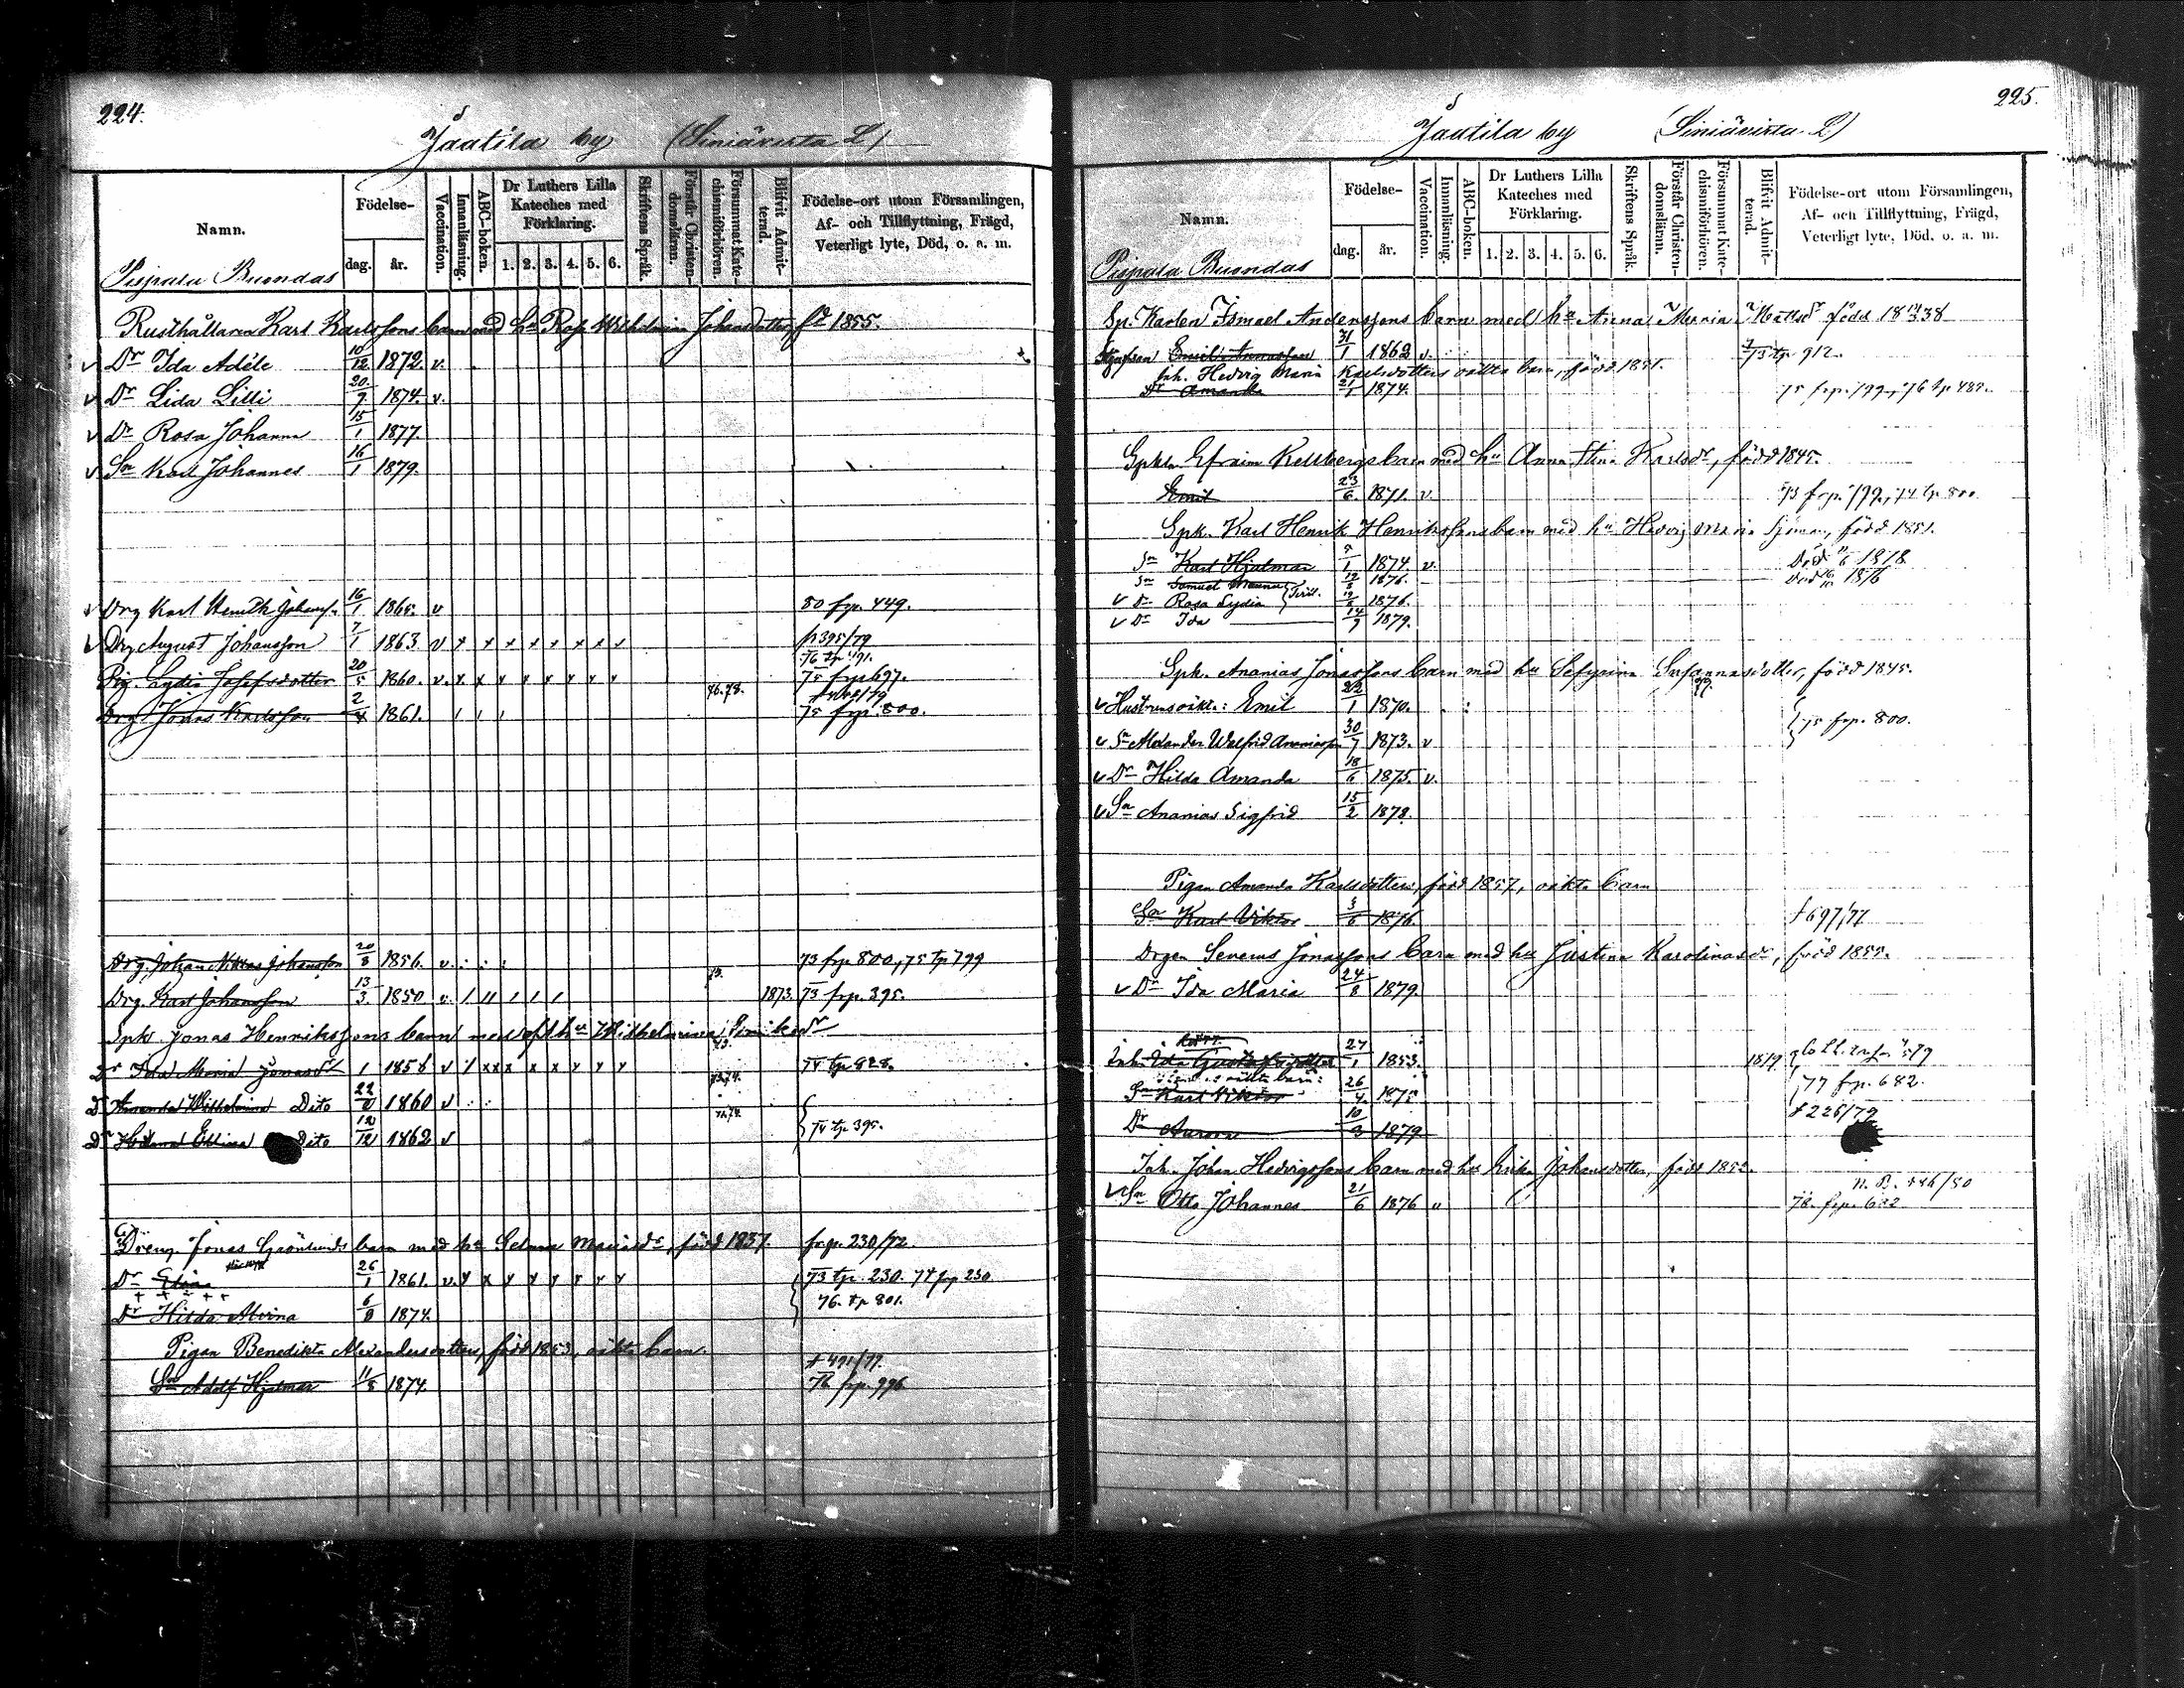 224.
Jaatila by (Siniävirta L)
Namn.
Födelse-
dag. år.
Vaccination.
Innanläsning.
ABC-boken.
Dr Luthers Lilla Kateches med Förklaring.
1. 2. 3. 4. 5. 6.
Skriftens Språk.
Förstår Christendomsläran.
Försummat Katechismiförhören.
Blifvit Admitterad.
Födelse-ort utom Församlingen, Af- och Tillflyttning, Frägd, Veterligt lyte, Död, o. a. m.
Pispala Buondas
Rusthållaren Karl Karlssons barn med hu Rosa Wilhelmina Johansdotter, fd 1855.
v Dr Ida Adéle 10/12 1872. v.
v Dr Lida Lilli 20/9 1874. v.
v Dr Rosa Johanna 15/1 1877.
v Sn Karl Johannes 16/1 1879.
v Drg Karl Henrik Johanss. 16/1 1865. v 80 frp. 449.
v Drg August Johansson 7/1 1863 v x x x x x x x x p 395/79
76 tp 191.
Pig. Lydia Josefsdotter 20/5 1860. v. x x x x x x x x 75 frp 697.
Drg Jonas Karlsson 2/4 1861. 76.78. 75 frp. 800.
Drg. Johan Niklas Johansson 20/3 1856. v. 73 frp 800, 75 tp 799
Drg. Karl Johansson 13/3 1850 v. 73. 1873. 73 frp. 395.
Spk. Jonas Henrikssons barn med hu Wilhelmina
Dr Ida Maria Jonasdr 1 1858 v 74 tp 828.
Dr Amanda Wilhelmina Dito 22/ 1860 v
Dr Ellina Dito 12/12 1862 v 74 tp 395.
Dreng Jonas Grönlunds barn med hu Selma Mariasdr, född 1837. frp. 230/72.
Dr Elina 26/1 1861. v. x x x x x x x x 73 tp. 230. 74 frp 230
76. tp 801.
Dr Hilda Alvina 6/8 1874.
Pigan Benedikta Alexandersdotters, född 1853, oäkta barn.
Sn Adolf Hjalmar 11/8 1874 † 491/77.
76 frp. 996
225.
Jaatila by (Siniävirta L)
Namn.
Födelse-
dag. år.
Vaccination.
Innanläsning.
ABC-boken.
Dr Luthers Lilla Kateches med Förklaring.
1. 2. 3. 4. 5. 6.
Skriftens Språk.
Förstår Christendomsläran.
Försummat Katechismiförhören.
Blifvit Admitterad.
Födelse-ort utom Församlingen, Af- och Tillflyttning, Frägd, Veterligt lyte, Död, o. a. m.
Pispala Buondas
Sp. Karlen Ismael Anderssons barn med hu Anna Maria Mattsdr född 1838
Styfson Emil 31/1 1862 v. 73 tp 912.
Inh. Hedvig Maria Karlsdotters oäkta barn, född 1851.
Dr Amanda 21/1 1874. 75 frp. 199, 76 tp 488.
Spkln Efraim Kellbergs barn med hu Anna Stina Karlsdr, född 1845.
Emil 23/6 1871. v. 73 frp. 199, 74 tp 800
Spk. Karl Henrik Henrikssons barn med hu Hedvig Maria Sjöman, född 1851.
Sn Karl Hjalmar 1874. v. Död 1878
Sn Samuel 1876. Död 1876
v Dr Rosa Lydia 1876.
v Dr Ida 14/9 1879.
Spk. Ananias Jonassons barn med hu Sefyrina Susannasdotter, född 1845.
v Hustruns oäkt.: Emil 22/1 1870. 75 frp. 800.
v Sn Alexander Walfrid Ananiasson 30/7 1873. v
v Dr Hilda Amanda 18/6 1875. v.
v Sn Ananias Sigfrid 15/2 1878.
Pigan Amanda Karlsdotters, född 1857, oäkta barn
Sn Karl Viktor 3/6 1876. † 697/77
Drgen Severus Jonassons barn med hu Justina Karolinasdr, född 1855.
v Dr Ida Maria 24/8 1879.
Inh. Ida Gustafsdotter 27/1 1853. 1879
oäkta barn:
Sn Karl Viktor 26/4 1875 77 frp. 682.
Dr Aurora 10/3 1879 † 226/79
Inh. Johan Hedvigssons barn med hu Erika Johansdotter, född 1852.
v Sn Otto Johannes 21/6 1876 78. frp. 682